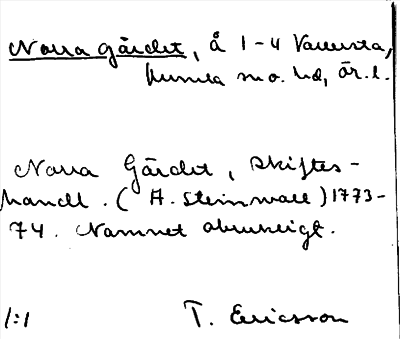 Norra gärdet, å 1-4 Vallersta,
Kumla sn o. hd, Ör. l.
Norra Gärdet, skiftes-
handl. (A. Steinwall) 1773-
74. Namnet obrukligt.
1:1 T. Ericsson